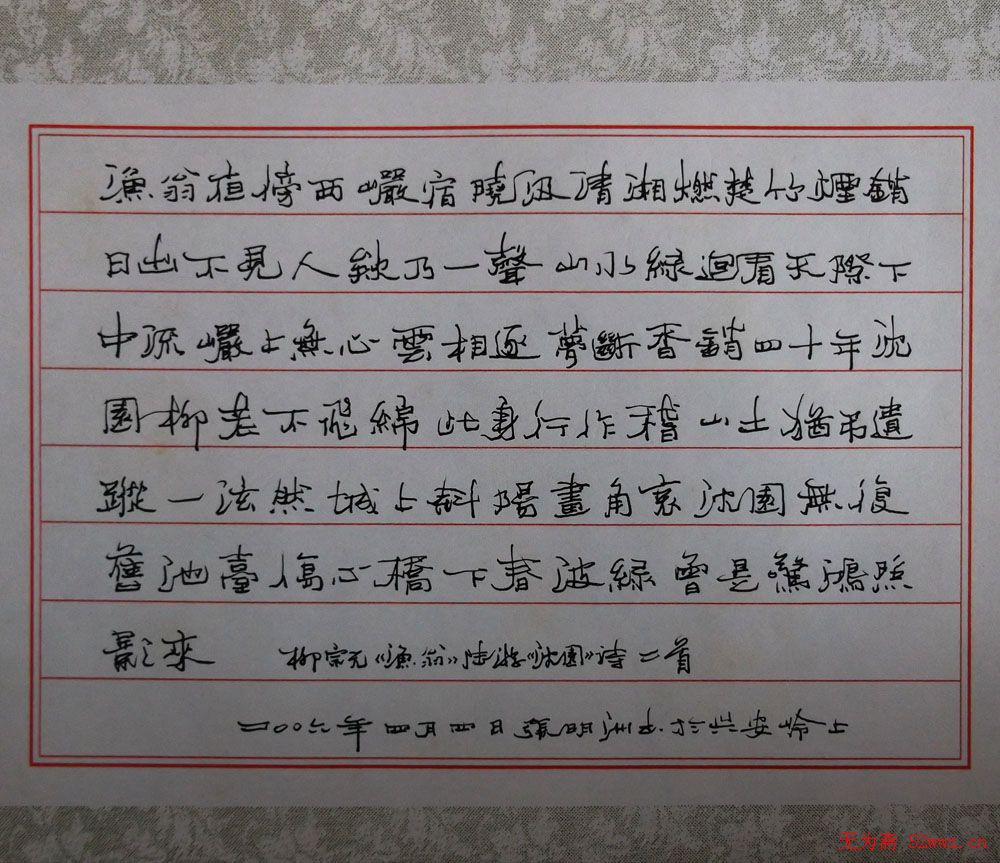 漁翁夜傍西巖宿曉汲清湘燃楚竹煙銷
日出不見人欸乃一聲山水綠迴看天際下
中流巖上無心雲相逐夢斷香銷四十年沈
園柳老不飛綿此身行作稽山土猶弔遺
蹤一泫然城上斜陽畫角哀沈園無復
舊池臺傷心橋下春波綠曾是驚鴻照
影來 柳宗元《漁翁》陸游《沈園》诗二首
二〇〇六年四月四日張明洲书於兴安岭上
无为斋 52wwz.cn